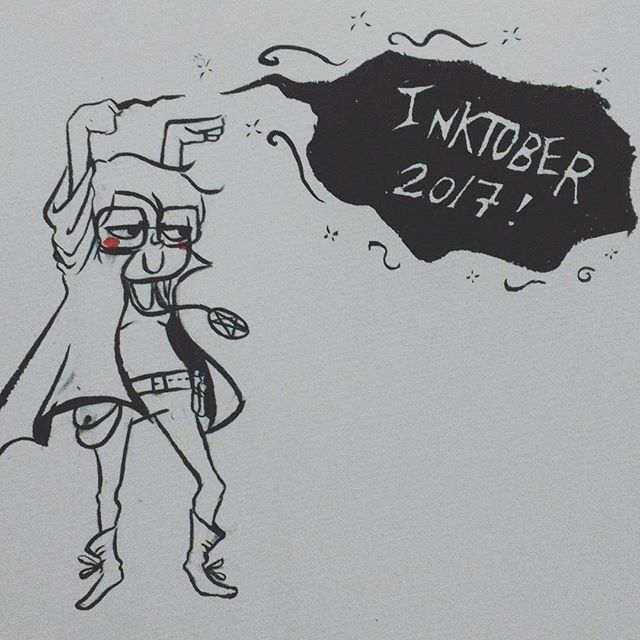 INKTOBER
2017!